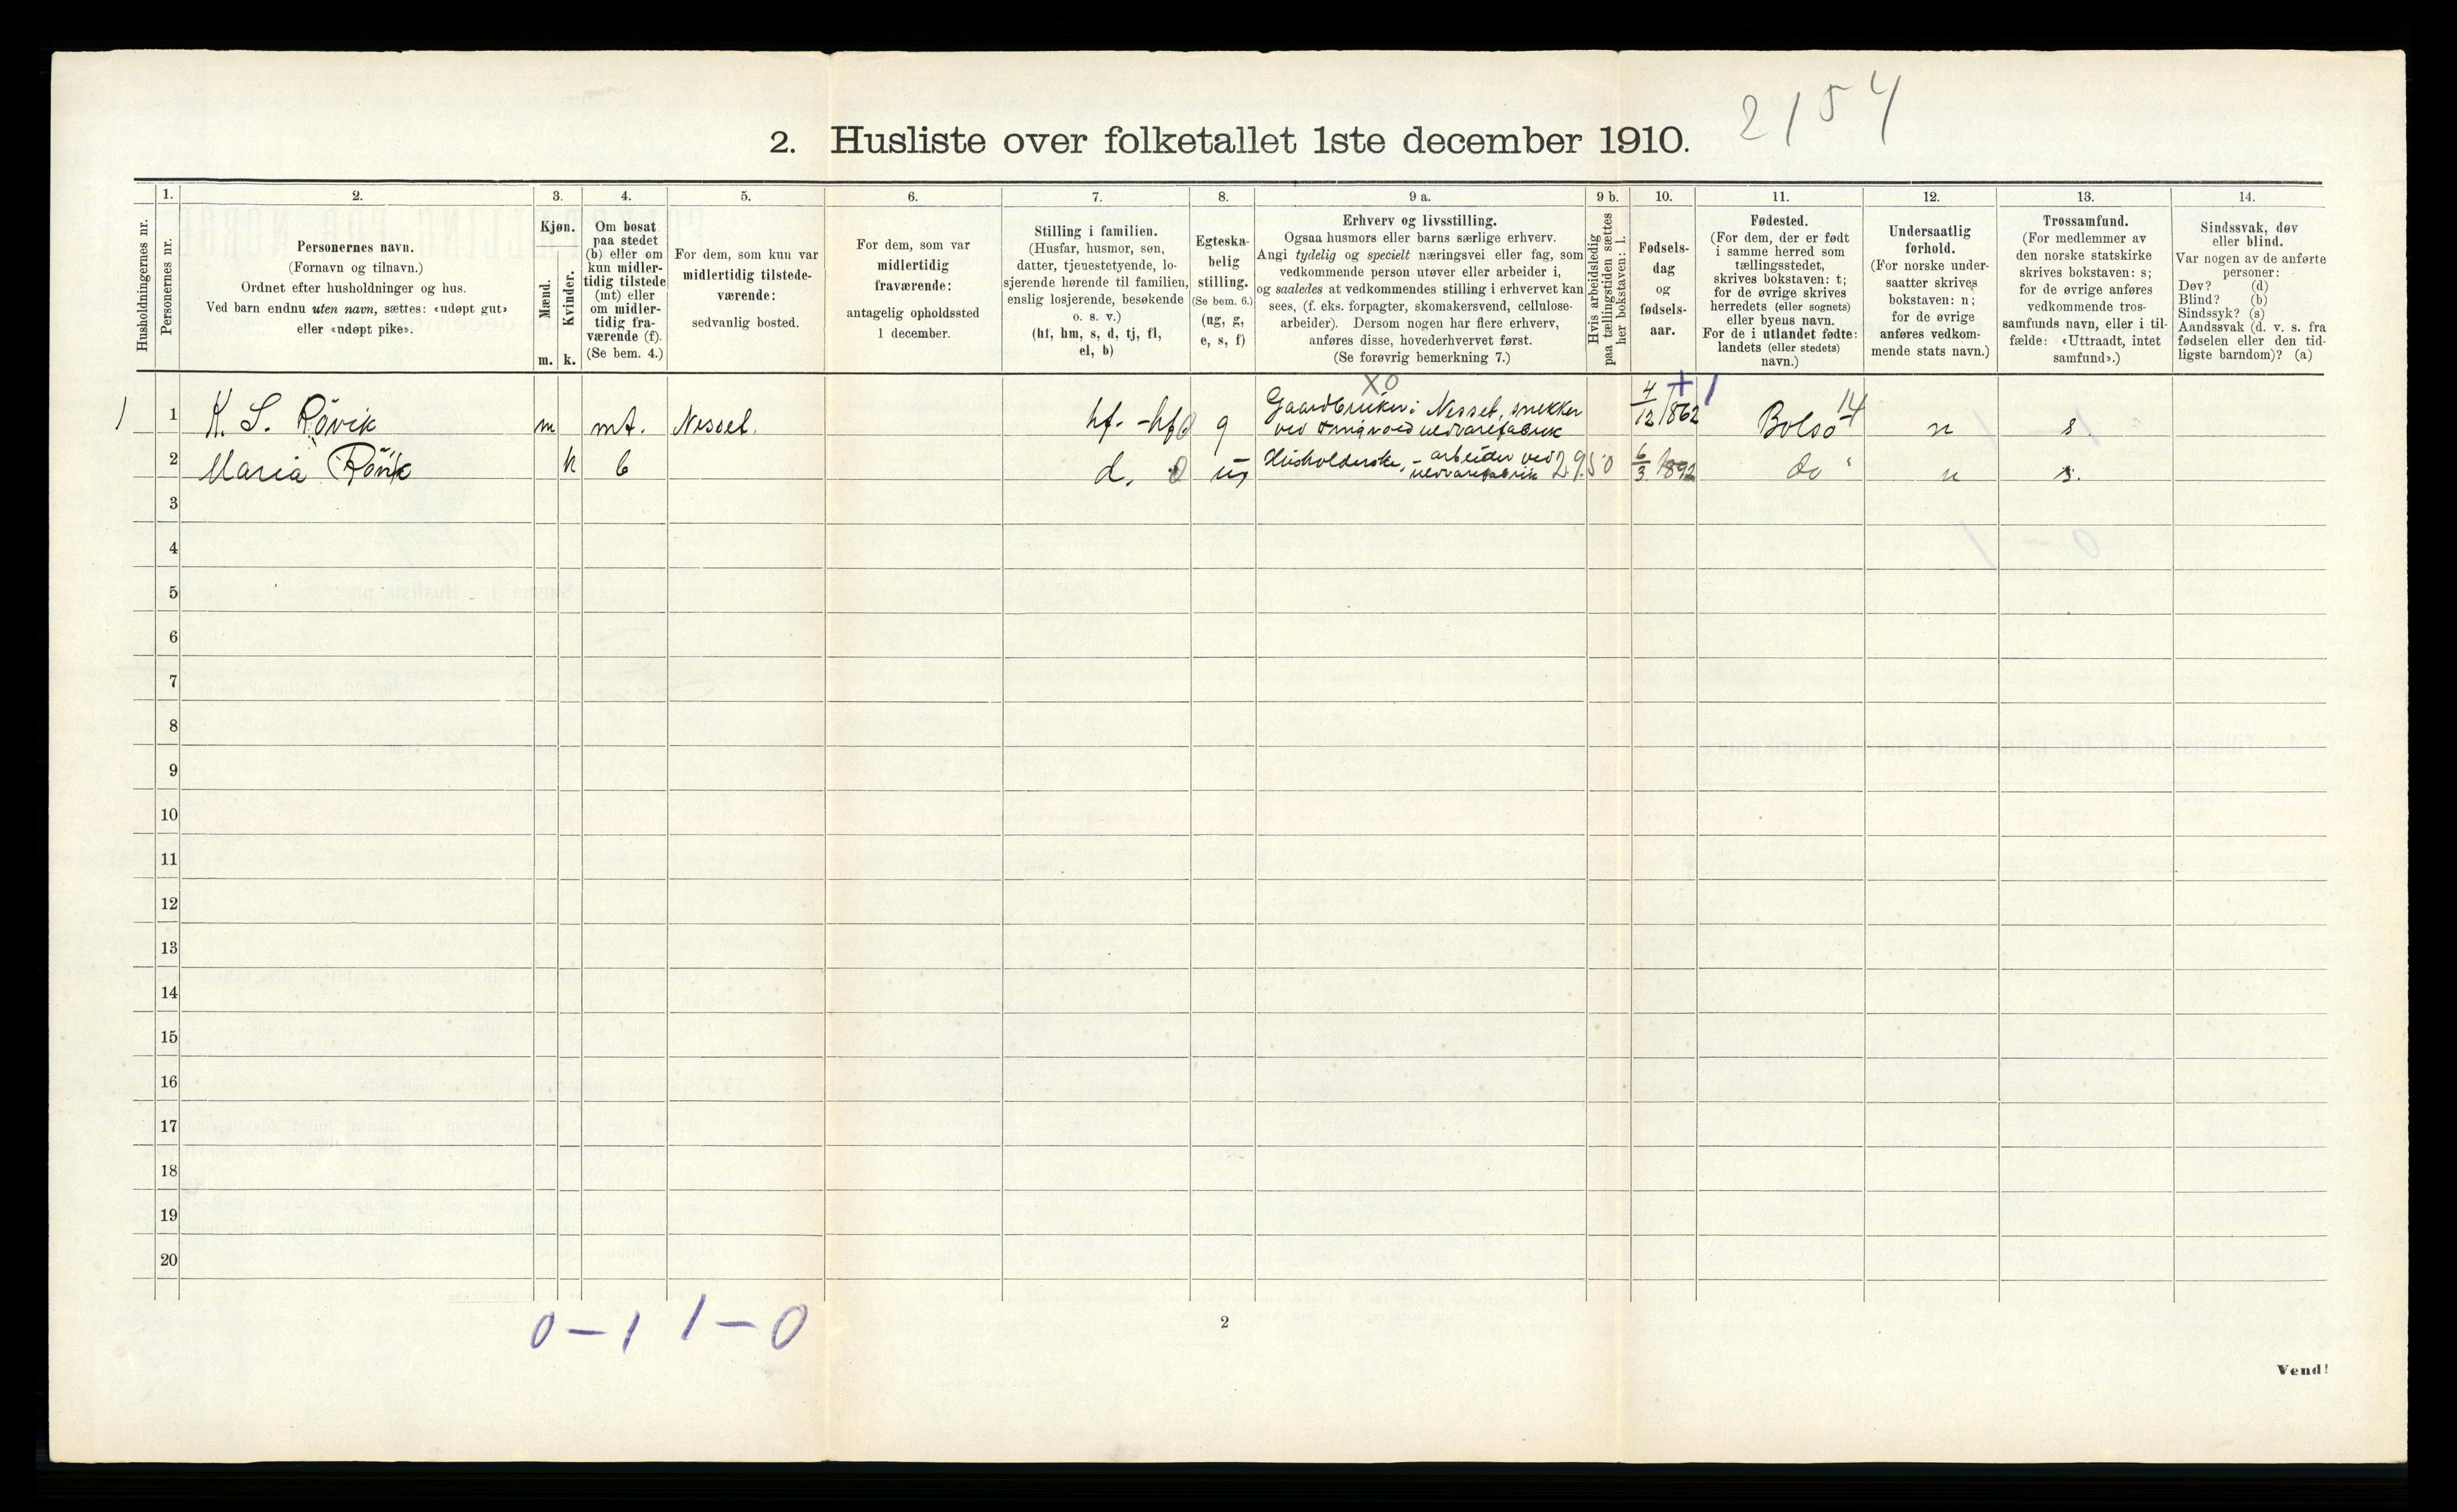 2154
2. Husliste over folketallet 1ste december 1910.
Husholdningernes nr.
1.
Personernes nr.
2.
Personernes navn.
(Fornavn og tilnavn.)
Ordnet efter husholdninger og hus.
Ved barn endnu uten navn, sættes: «udøpt gut»
eller «udøpt pike».
3.
Kjøn.
Mænd.
Kvinder.
m. k.
4.
Om bosat
paa stedet
(b) eller om
kun midler-
tidig tilstede
(mt) eller
om midler-
tidig fra-
værende (f).
(Se bem. 4.)
5.
For dem, som kun var
midlertidig tilstede-
værende:
sedvanlig bosted.
6.
For dem, som var
midlertidig
fraværende:
antagelig opholdssted
1 december.
7.
Stilling i familien.
(Husfar, husmor, søn,
datter, tjenestetyende, lo-
sjerende hørende til familien,
enslig losjerende, besøkende
o. s. v.)
(hf, hm, s, d, tj, fl,
el, b)
8.
Egteska-
belig
stilling.
(Se bem. 6.)
(ug, g,
e, s, f)
9 a.
Erhverv og livsstilling.
Ogsaa husmors eller barns særlige erhverv.
Angi tydelig og specielt næringsvei eller fag, som
vedkommende person utøver eller arbeider i,
og saaledes at vedkommendes stilling i erhvervet kan
sees, (f. eks. forpagter, skomakersvend, cellulose-
arbeider). Dersom nogen har flere erhverv,
anføres disse, hovederhvervet først.
(Se forøvrig bemerkning 7.)
9 b.
Hvis arbeidsledig
paa tællingstiden sættes
her bokstaven: l.
10.
Fødsels-
dag
og
fødsels-
aar.
11.
Fødested.
(For dem, der er født
i samme herred som
tællingsstedet,
skrives bokstaven: t;
for de øvrige skrives
herredets (eller sognets)
eller byens navn.
For de i utlandet fødte:
landets (eller stedets)
navn.)
12.
Undersaatlig
forhold.
(For norske under-
saatter skrives
bokstaven: n;
for de øvrige
anføres vedkom-
mende stats navn.)
13.
Trossamfund.
(For medlemmer av
den norske statskirke
skrives bokstaven: s;
for de øvrige anføres
vedkommende tros-
samfunds navn, eller i til-
fælde: «Uttraadt, intet
samfund».)
14.
Sindssvak, døv
eller blind.
Var nogen av de anførte
personer:
Døv? (d)
Blind? (b)
Sindssyk? (s)
Aandssvak (d. v. s. fra
fødselen eller den tid-
ligste barndom)? (a)
X0
1 1 K. S. Rövik m mt. Nesset. hf. -hf0 g Gaardbruker i Nesset, snekker ved uldvarefabrik 4/12 1862 + 1 Bolsö 14 n s.
2 Maria Rövik k b d. 0 ug Husholderske, - arbeider ved uldvarefabrik 29.50 6/3 1892 do " n s.
3
4
5
6
7
8
9
10
11
12
13
14
15
16
17
18
19
20
0 – 1 1 – 0
2
Vend!